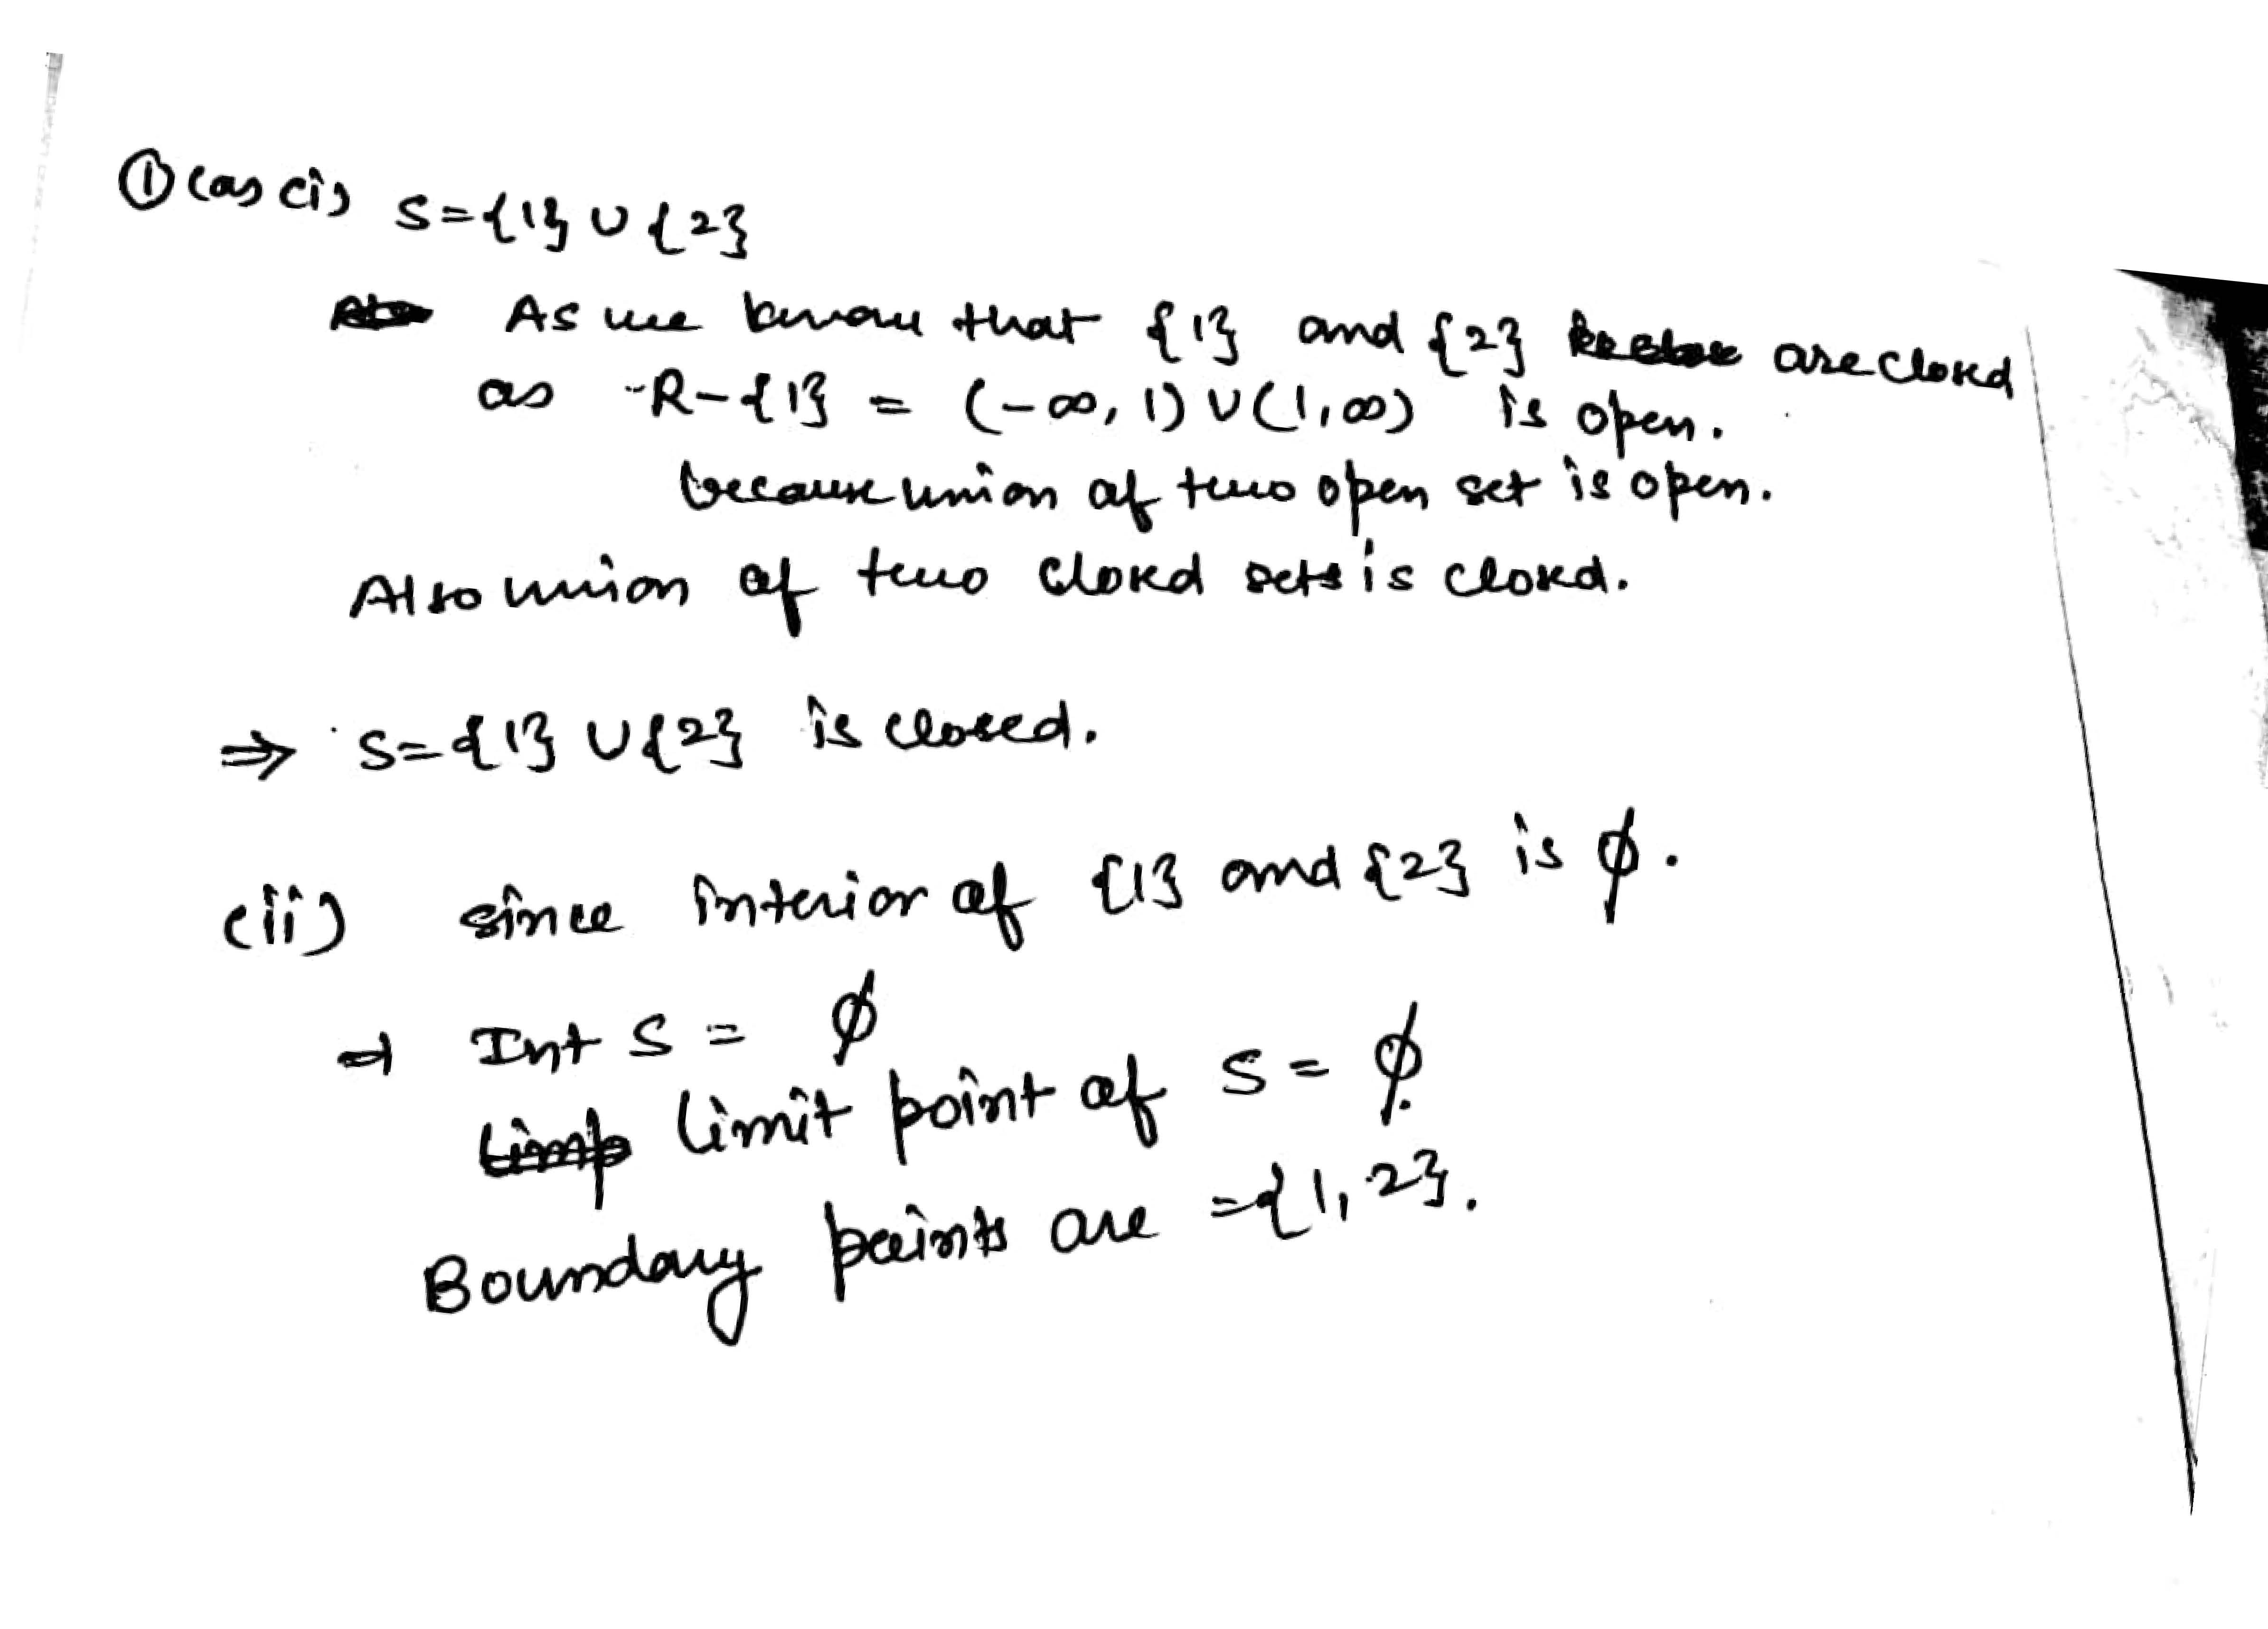 ① (a) (i) S={1} ∪ {2}
As we know that {1} and {2} are closed
as R-{1} = (-∞, 1) ∪ (1, ∞) is open.
because union of two open set is open.
Also union of two closed sets is closed.
⇒ S={1} ∪ {2} is closed.
(ii) since interior of {1} and {2} is ϕ.
⇒ Int S = ϕ
limit point of S = ϕ.
Boundary points are = {1, 2}.